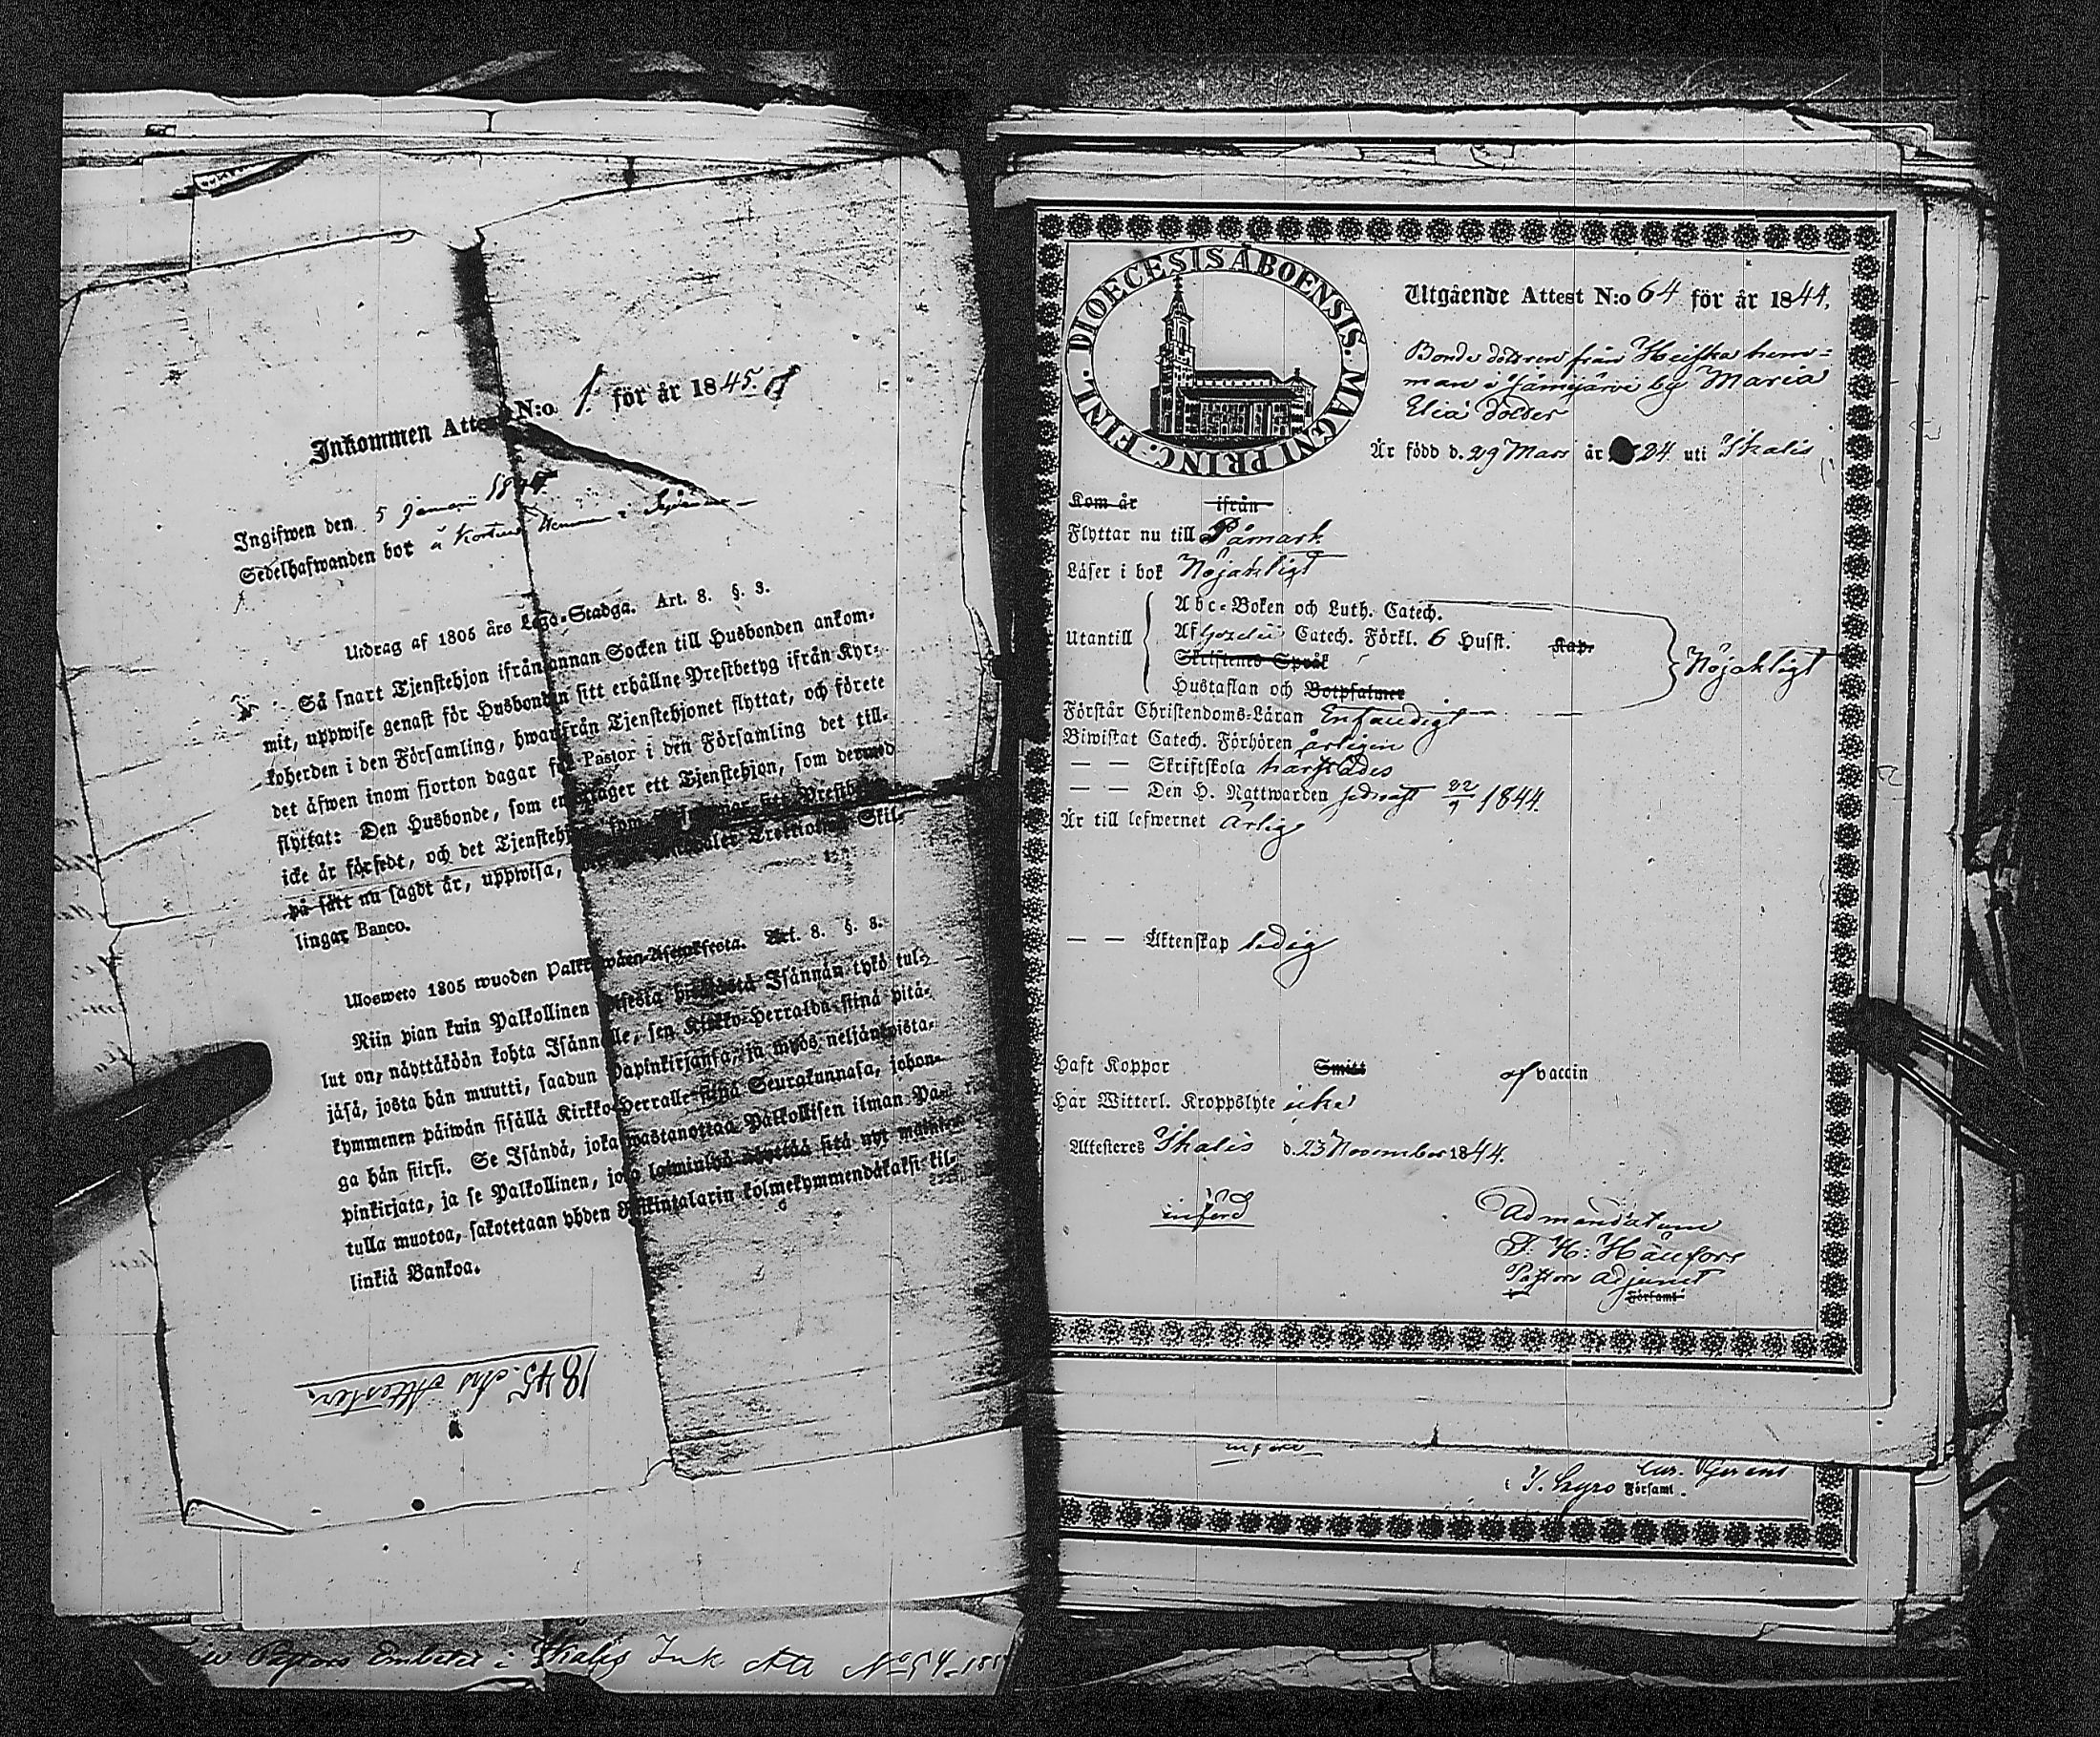 Inkommen Attest N:o 1. för år 1845.
Ingifwen den 5 Januari
Sedelhafwanden bor å
Utdrag af 1805 års Lego-Stadga. Art. 8. §. 3.
Så snart Tjenstehjon ifrån annan Socken till Husbonden ankom-
mit, uppwise genast för Husbonden sitt erhållne Prestbetyg ifrån Kyr-
koherden i den Församling, hwarifrån Tjenstehjonet flyttat, och förete
det äfwen inom fjorton dagar för Pastor i den Församling det till-
flyttat: Den Husbonde, som emottager ett Tjenstehjon, som dermed
icke är försedt, och det Tjenstehjon, som
på sätt nu sagdt är, uppwisa, Skil-
lingar Banco.
Ulosweto 1805 wuoden Palkkawäen-Asetuksesta. Art. 8. §. 3.
Niin pian kuin Palkollinen Isännän tykö tul-
lut on, näyttäköön kohta Isännälle, sen Kirkko-Herralda siinä pitä-
jäsä, josta hän muutti, saadun Papinkirjansa, ja myös neljäntoista-
kymmenen päiwän sisällä Kirkko-Herralle siinä Seurakunnasa, johon-
ga hän siirsi. Se Isändä, joka wastanottaa Palkollisen ilman Pa-
pinkirjata, ja se Palkollinen, joka laiminlyö näyttää sitä nyt mainit-
tulla muotoa, sakotetaan yhden Riikintalarin kolmekymmendäkaksi kil-
linkiä Bankoa.
1845 Års Attester.
Pastors Embetet i Ikalis Ink. Att. No 54
DIOECESIS ÅBOENSIS. MAGNI PRINC. FINL.
Utgående Attest N:o 64 för år 1844.
Bonde dottren från Heiska hem-
man i Jämijärvi by Maria
Elia dotter
Är född d. 29 Mars år 24 uti Ikalis
Kom år ifrån
Flyttar nu till Påmark
Läser i bok Nöjaktigt
Utantill
Abc-Boken och Luth. Catech.
Af Catech. Förkl. 6 Husst. Kap.
Skriftenes Språk
Hustaflan och Botpsalmer
Nöjaktigt
Förstår Christendoms-Läran Enfaldigt
Biwistat Catech. Förhören årligen
— — Skriftskola härstädes
— — Den H. Nattwarden sednast 22/9 1844.
Är till lefwernet Ärlig
— — Äktenskap ledig
Haft Koppor Smitt af vaccin
Har Witterl. Kroppslyte icke
Attesteres Ikalis d. 23 November 1844.
införd
Ad mandatum
Pastors Adjunct
i Församl
införd
i Församl.